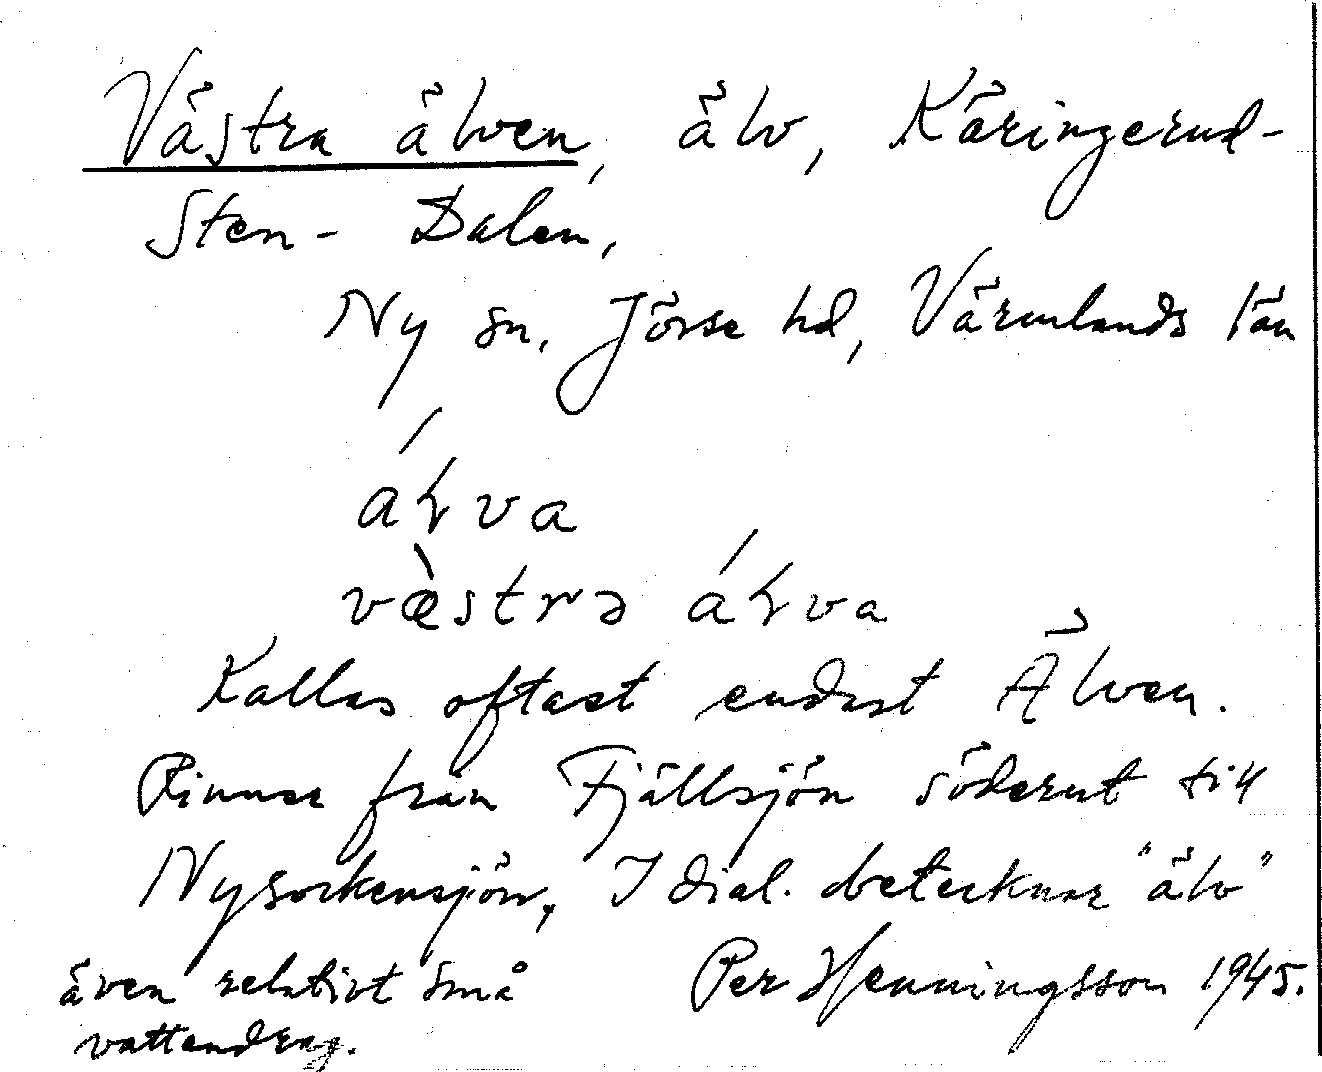 Västra älven, älv, Käringerud-
Sten- Dalen,
Ny sn, Jösse hd, Värmlands län
áɽva
væ̀strə áɽva
Kallas oftast endast Älven.
Rinner från Fjällsjön söderut till
Nysockensjön, I dial. betecknar "älv"
även relativt små
vattendrag.
Per Henningsson 1945.